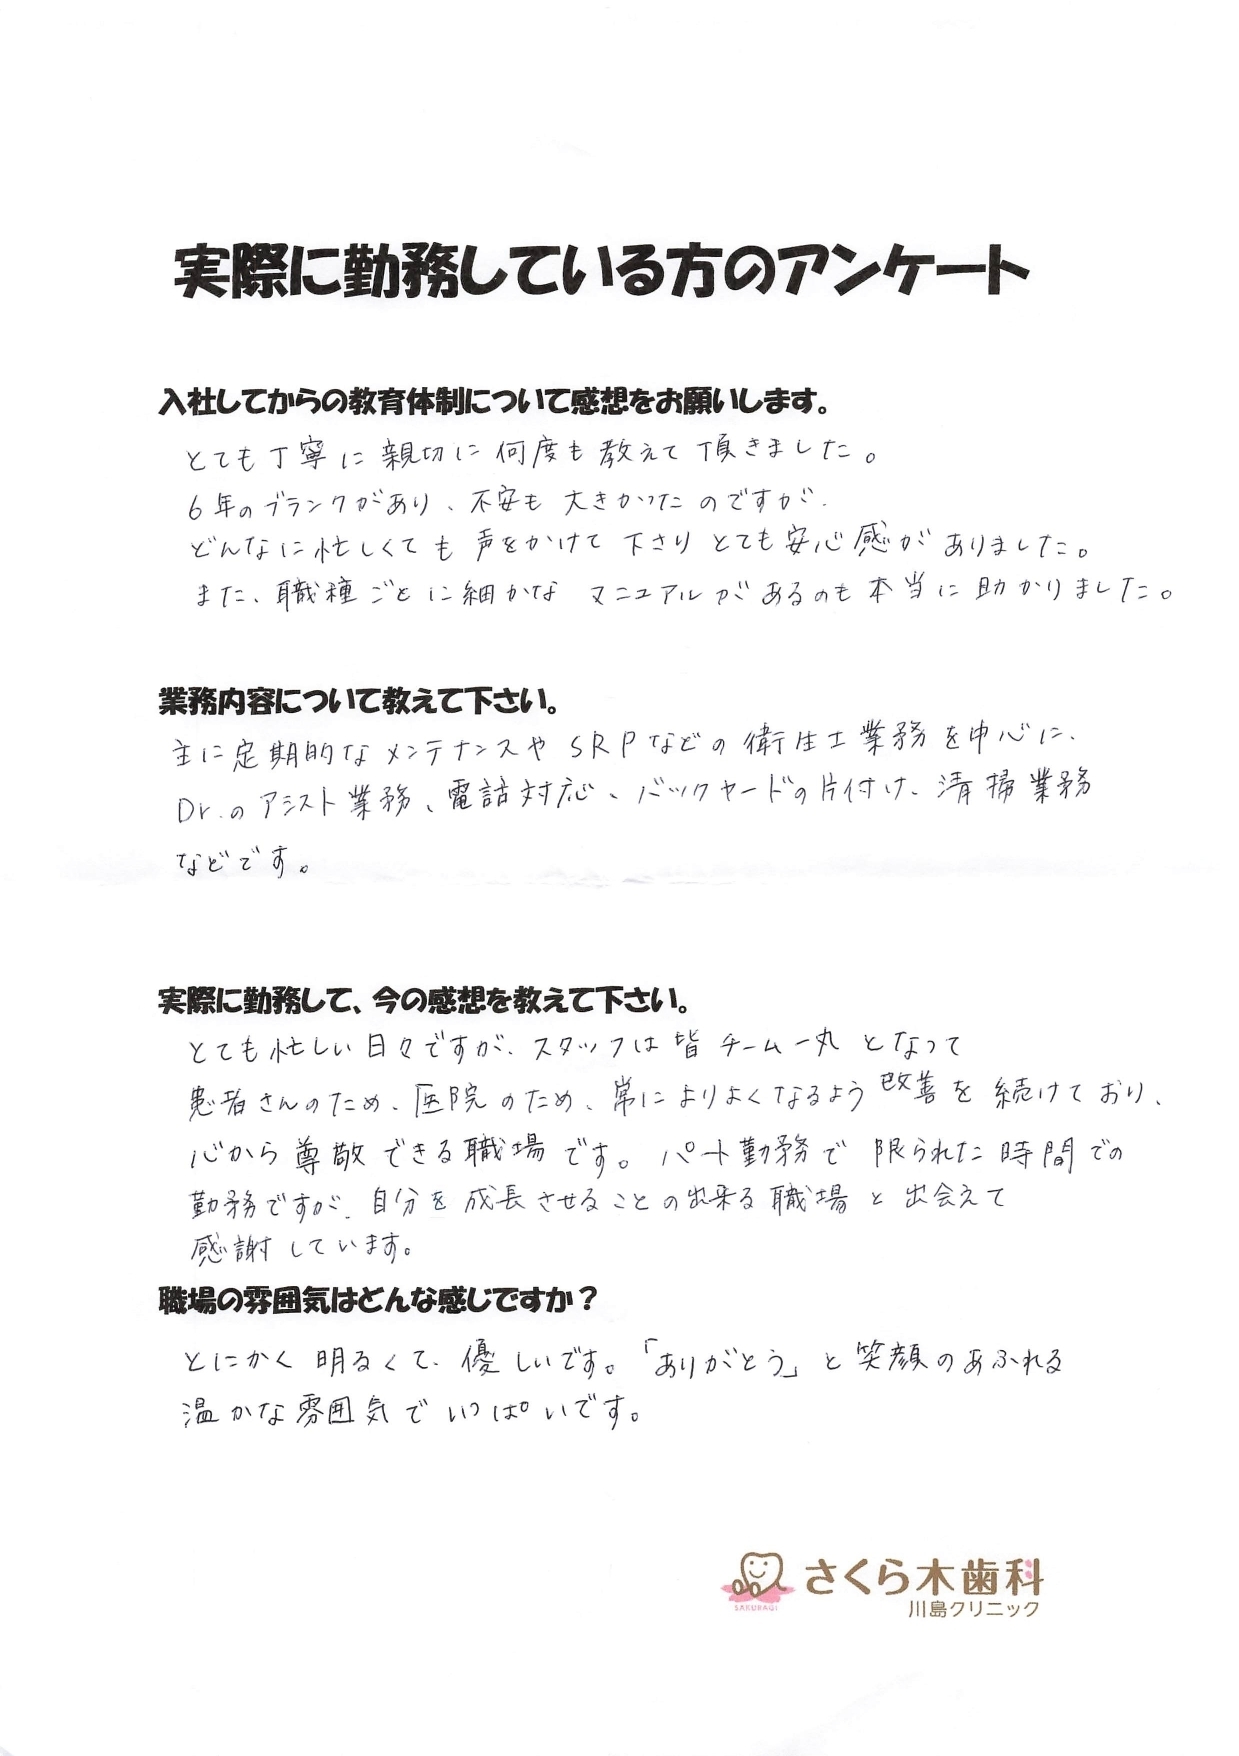 実際に勤務している方のアンケート
入社してからの教育体制について感想をお願いします。
とても丁寧に親切に何度も教えて頂きました。
6年のブランクがあり、不安も大きかったのですが、
どんなに忙しくても声をかけて下さりとても安心感がありました。
また、職種ごとに細かなマニュアルがあるのも本当に助かりました。
業務内容について教えて下さい。
主に定期的なメンテナンスやSRPなどの衛生士業務を中心に、
Dr.のアシスト業務、電話対応、バックヤードの片付け、清掃業務
などです。
実際に勤務して、今の感想を教えて下さい。
とても忙しい日々ですが、スタッフは皆チーム一丸となって
患者さんのため、医院のため、常によりよくなるよう改善を続けており、
心から尊敬できる職場です。パート勤務で限られた時間での
勤務ですが、自分を成長させることの出来る職場と出会えて
感謝しています。
職場の雰囲気はどんな感じですか？
とにかく明るくて、優しいです。「ありがとう」と笑顔のあふれる
温かな雰囲気でいっぱいです。
さくら木歯科
SAKURAGI
川島クリニック